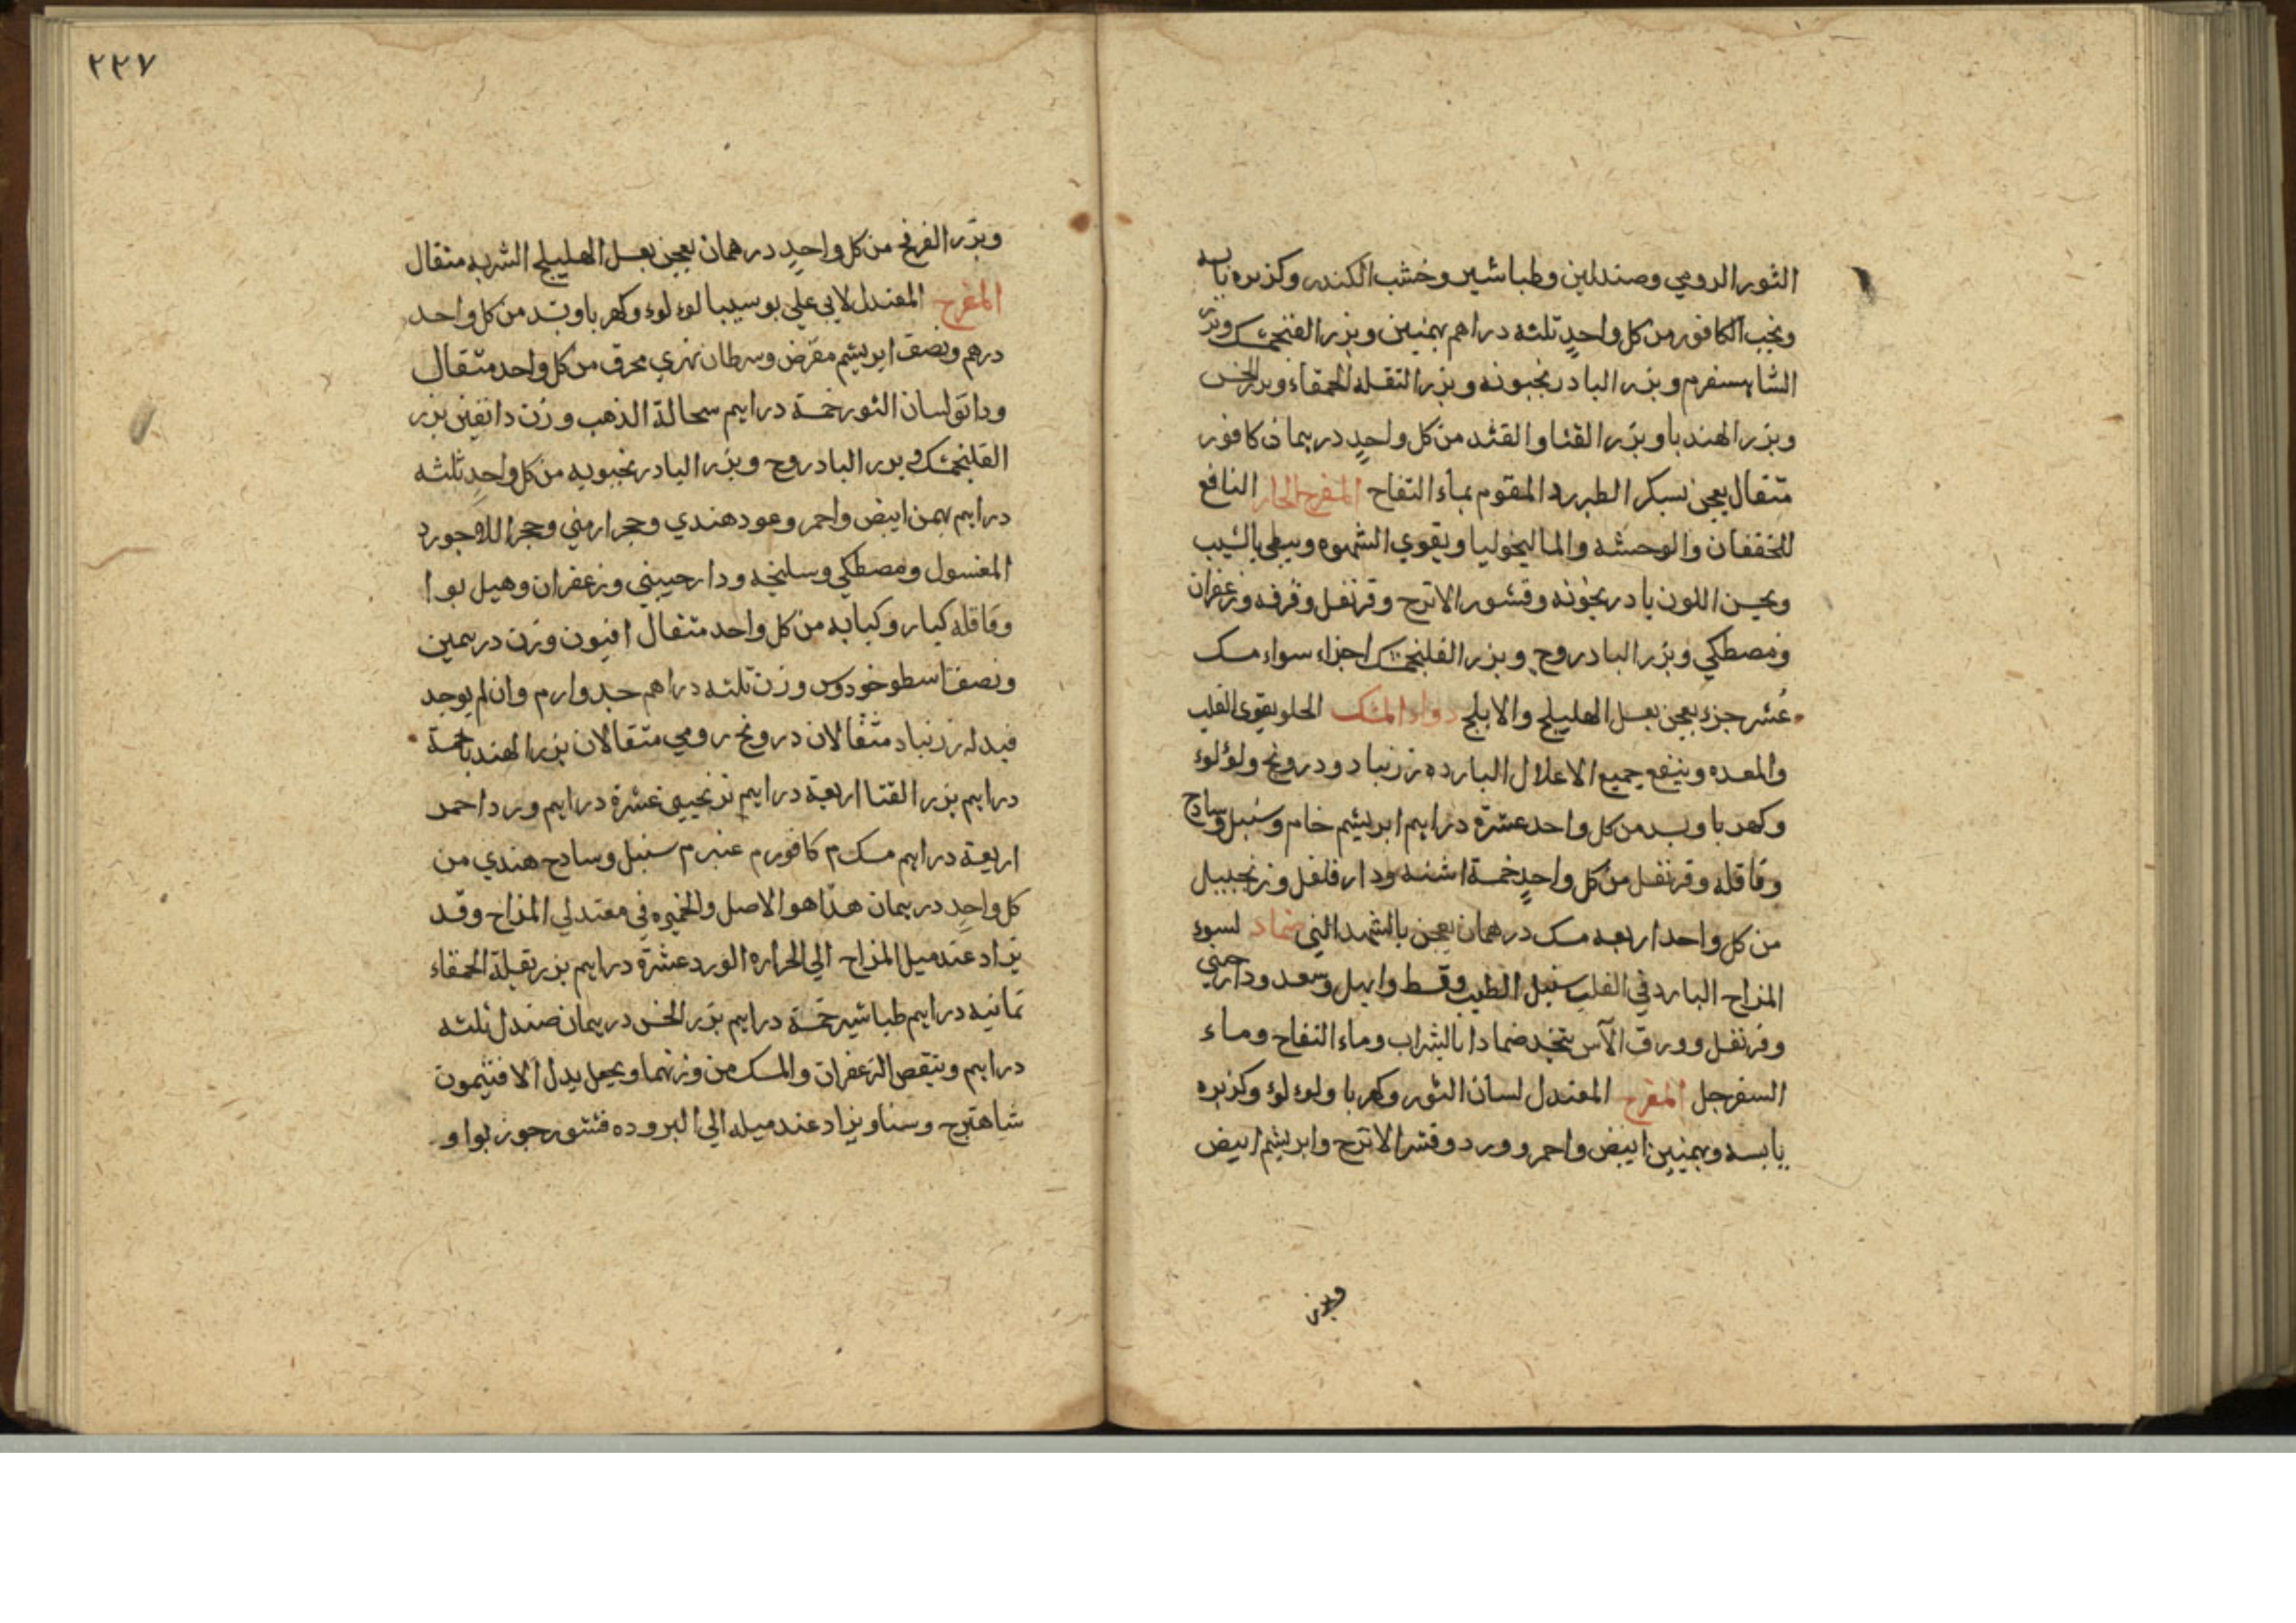 الثور الرومي وصندلين وطباشير وخشب الكندر وكزبره يابسه
ونجب الكافور من كل واحدٍ ثلثه دراهم بهمنين وبزر الفنجمشك وبزر
الشاهسفرم وبزر البادرنجبونه وبزر التقله الحمقاء وبزر الخس
وبزر الهندبا وبزر القثا والقثد من كل واحدٍ درهمان كافور
مثقال يعجن بسكر الطبررد المقوم بماء التفاح المفرح الحار النافع
للخفقان والوحشه والماليخوليا ويقوي الشهوه ويبطى بالشيب
ويحسن اللون بادرنجونه وقشور الاترج وقرنفل وقرفه وزعفران
ومصطكي وبزر البادروج وبزر الفلنجمشك اجزاء سواء مسك
عُشر جزء يعجن بعسل الهليلج والابلج دواء المسك الحلو يقوى القلب
والمعده وينفع جميع الاعلال البارده زرنباد ودرونج ولؤلؤ
وكهربا وبسد من كل واحد عشرة دراهم ابريشم خام وسنبل وسادج
وقاقله وقرنفل من كل واحدٍ خمسة اشنه ودار فلفل وزنجبيل
من كل واحد اربعه مسك درهمان يعجن بالشهد الني ضماد لسوء
المزاج البارد في القلب سنبل الطيب وقسط وابهل وسعد ودارصيني
وقرنفل وورق الآس يتخد ضمادا بالشراب وماء التفاح وماء
السفرجل المفرح المعتدل لسان الثور وكهربا ولوء لوء وكزبره
يابسه وبهمنين ابيض واحمر وورد وقشر الاترج وابريشم ابيض
وبزر
٢٢٧
وبزر الفرنج من كل واحدٍ درهمان يعجن بعسل الهليلج الشربه مثقال
المفرح المعتدل لابي علي بو سيبا لوء لوء وكهربا وبسد من كل واحد
درهم ونصف ابريشم مقرض وسرطان نهري محرق من كل واحد مثقال
وداتو لسان الثور خمسة دراهم سحالة الذهب وزن دانقين بزر
الفلنجمشك وبزر البادروج وبزر البادرنجبويه من كل واحدٍ ثلثه
دراهم بهمن ابيض واحمر وعود هندي وحجر ارمني وحجر اللاجورد
المغسول ومصطكي وسليخه ودارحييني وزعفران وهيل بوا
وقاقله كبار وكبابه من كل واحد مثقال افتيون وزن درهمين
ونصف اسطوخودوس وزن ثلثه دراهم جدوار م وان لم يوجد
فبدله زرنباد مثقالان درونج رومي مثقالان بزر الهندبا خمسة
دراهم بزر القثا اربعة دراهم ترنجبين عشرة دراهم ورد احمد
اربعة دراهم مسك م كافور م عنبر م سنبل وسادج هندي من
كل واحدٍ درهمان هذا هو الاصل والخميره في معتدلي المزاج وقد
يزاد عند ميل المزاج الي الحراره الورد عشرة دراهم بزر بقلة الحمقاء
ثمانيه دراهم طباشير خمسة دراهم بزر الخس درهمان صندل ثلثه
دراهم وينقص الزعفران والمسك من وزنهما ويجعل بدل الافتيمون
شاهترج وسنا ويزاد عند ميله الي البروده قشور جوز بوا و